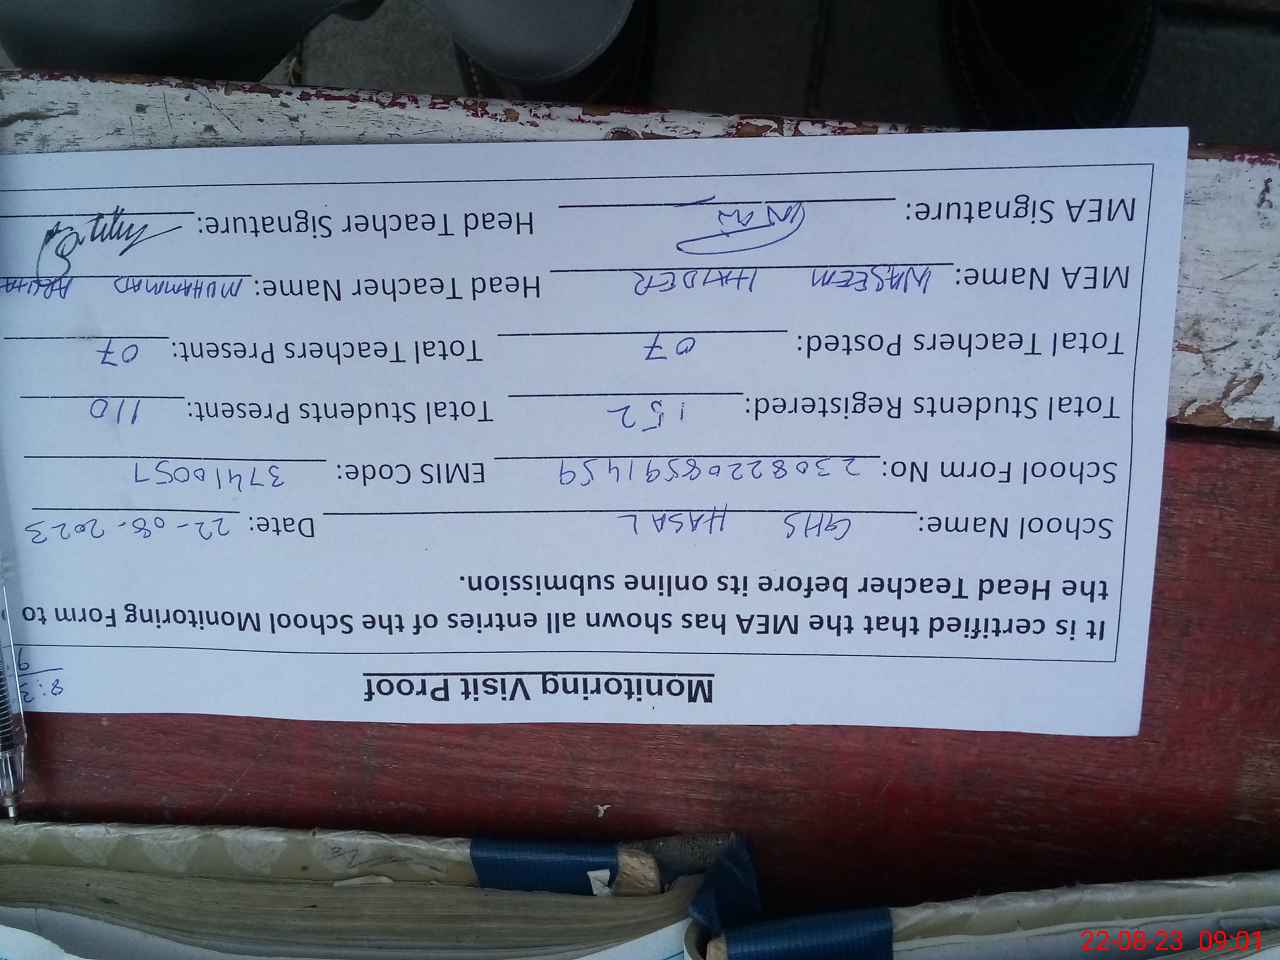 Monitoring Visit Proof
It is certified that the MEA has shown all entries of the School Monitoring Form to
the Head Teacher before its online submission.
School Name: GHS HASAL Date: 22-08-2023
School Form No: 23082208591459 EMIS Code: 37410057
Total Students Registered: 152 Total Students Present: 110
Total Teachers Posted: 07 Total Teachers Present: 07
MEA Name: WASEEM HAIDER Head Teacher Name: MUHAMMAD
MEA Signature: Head Teacher Signature:
22-08-23 09:01